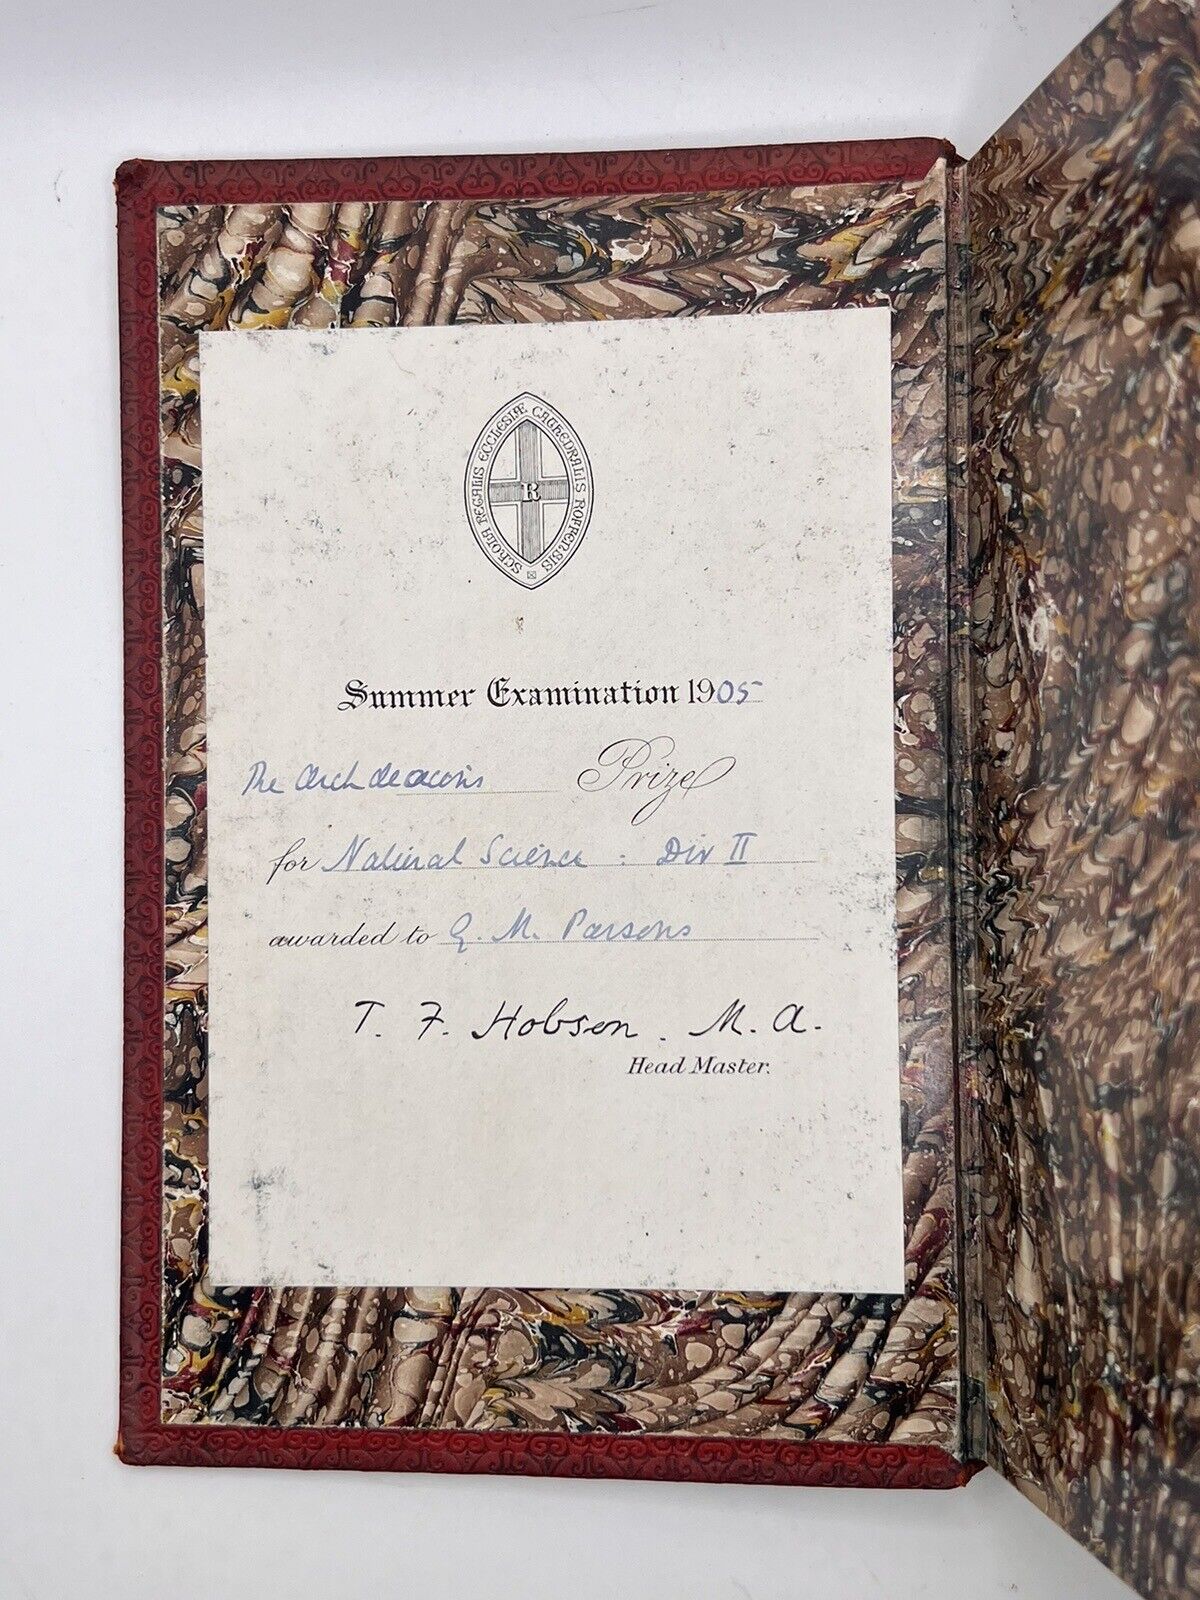 SCHOLA REGALIS ECCLESIÆ CATHEDRALIS ROFFENSIS
R
Summer Examination 1905
The Archdeacon's Prize
for Natural Science . Div II
awarded to G. M. Parsons
T. F. Hobson . M. A.
Head Master.